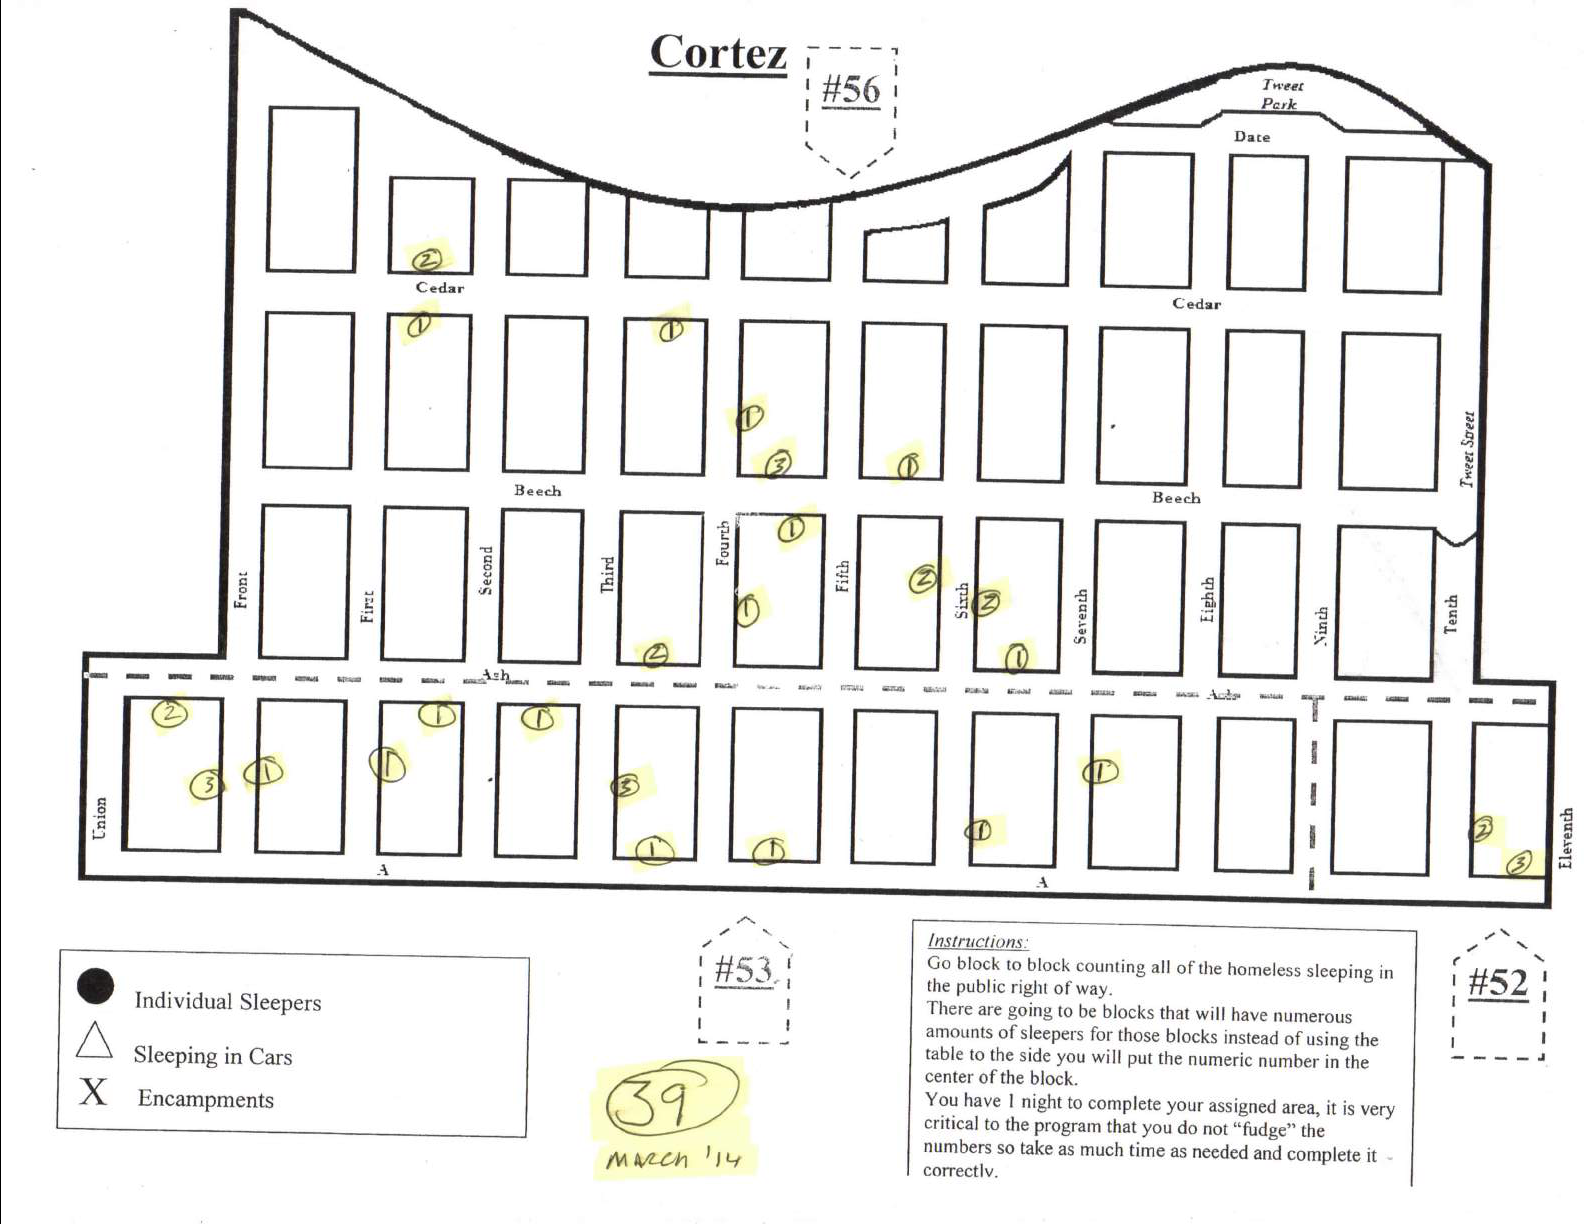 Cortez
#56
Tweet
Park
Date
2
Cedar
Cedar
1
1
1
3
1
Tweet Street
Beech
Beech
1
Front
First
Second
Third
Fourth
Fifth
Sixth
Seventh
Eighth
Ninth
Tenth
2
2
1
2
1
Ash
2
1
1
3
1
1
3
1
1
1
1
2
3
Union
Eleventh
A
A
#53
#52
Individual Sleepers
Sleeping in Cars
X Encampments
39
MARCH '14
Instructions:
Go block to block counting all of the homeless sleeping in
the public right of way.
There are going to be blocks that will have numerous
amounts of sleepers for those blocks instead of using the
table to the side you will put the numeric number in the
center of the block.
You have 1 night to complete your assigned area, it is very
critical to the program that you do not “fudge” the
numbers so take as much time as needed and complete it
correctly.